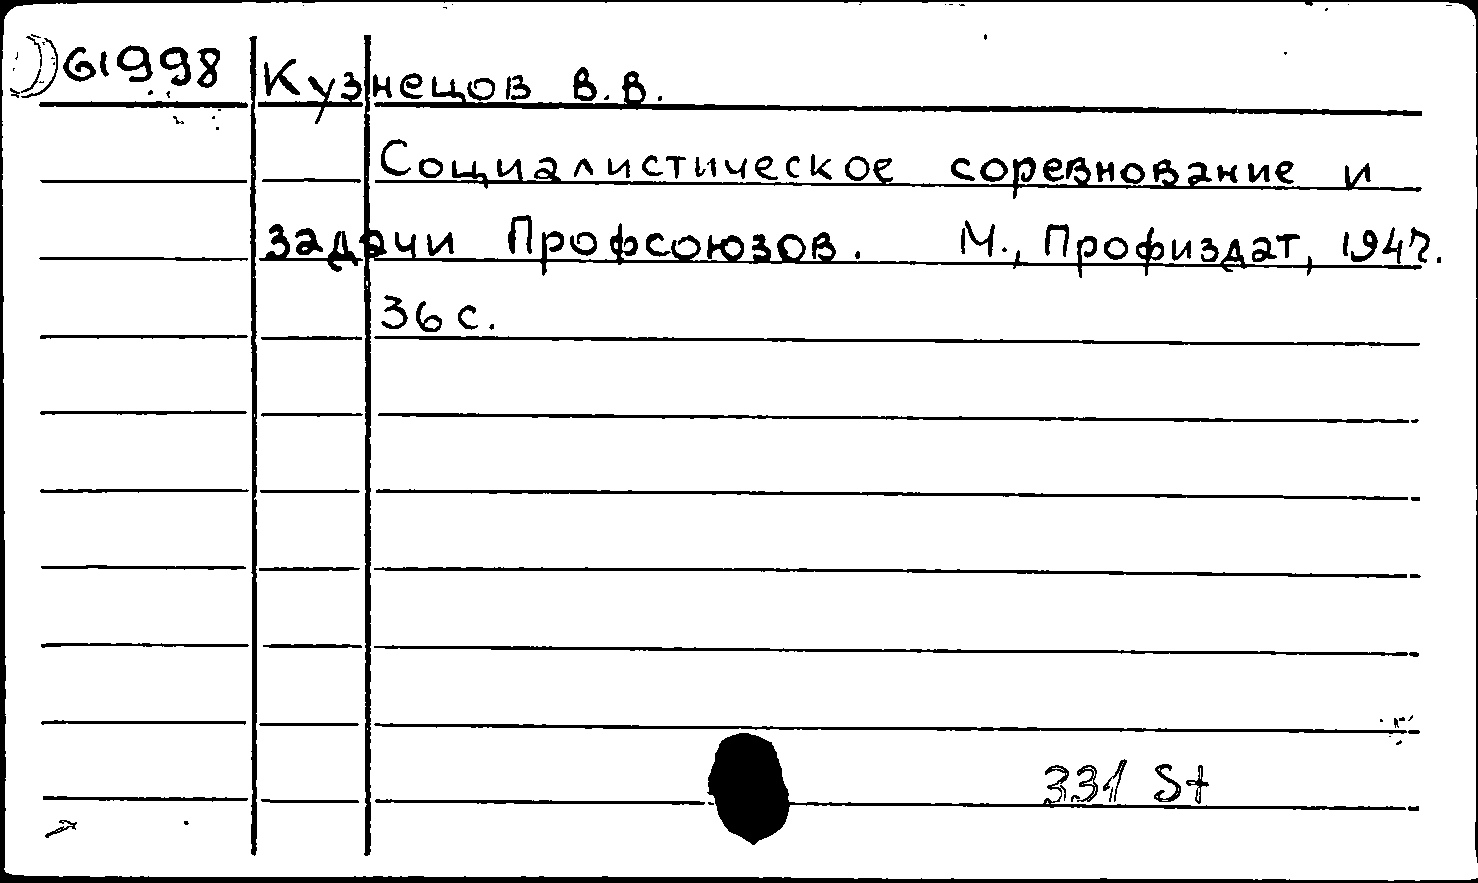 61998
Кузнецов В.В.
Социалистическое соревнование и
задачи Профсоюзов. М., Профиздат, 1947.
36 с.
331 St